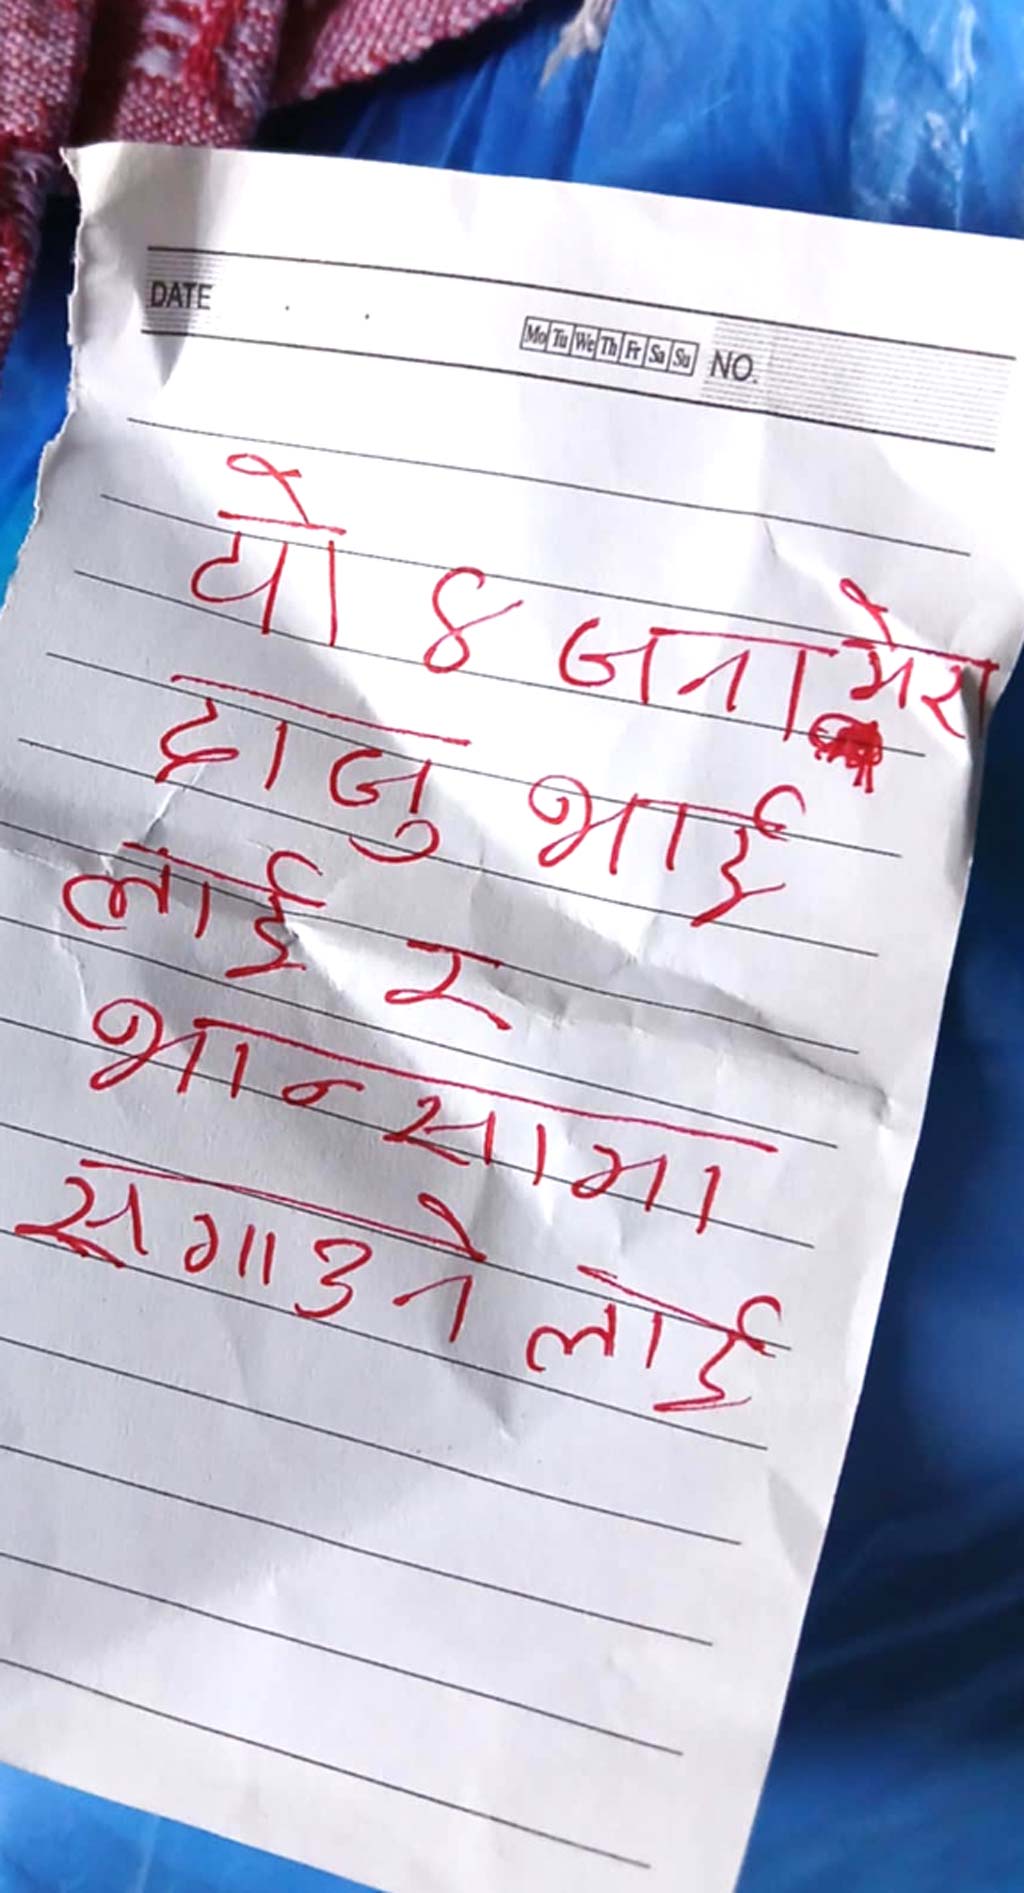 DATE Mo Tu We Th Fr Sa Su NO.
यो ४ जना मेरा
दाजु भाई
लाई र
भान्सामा
सगाउने लाई